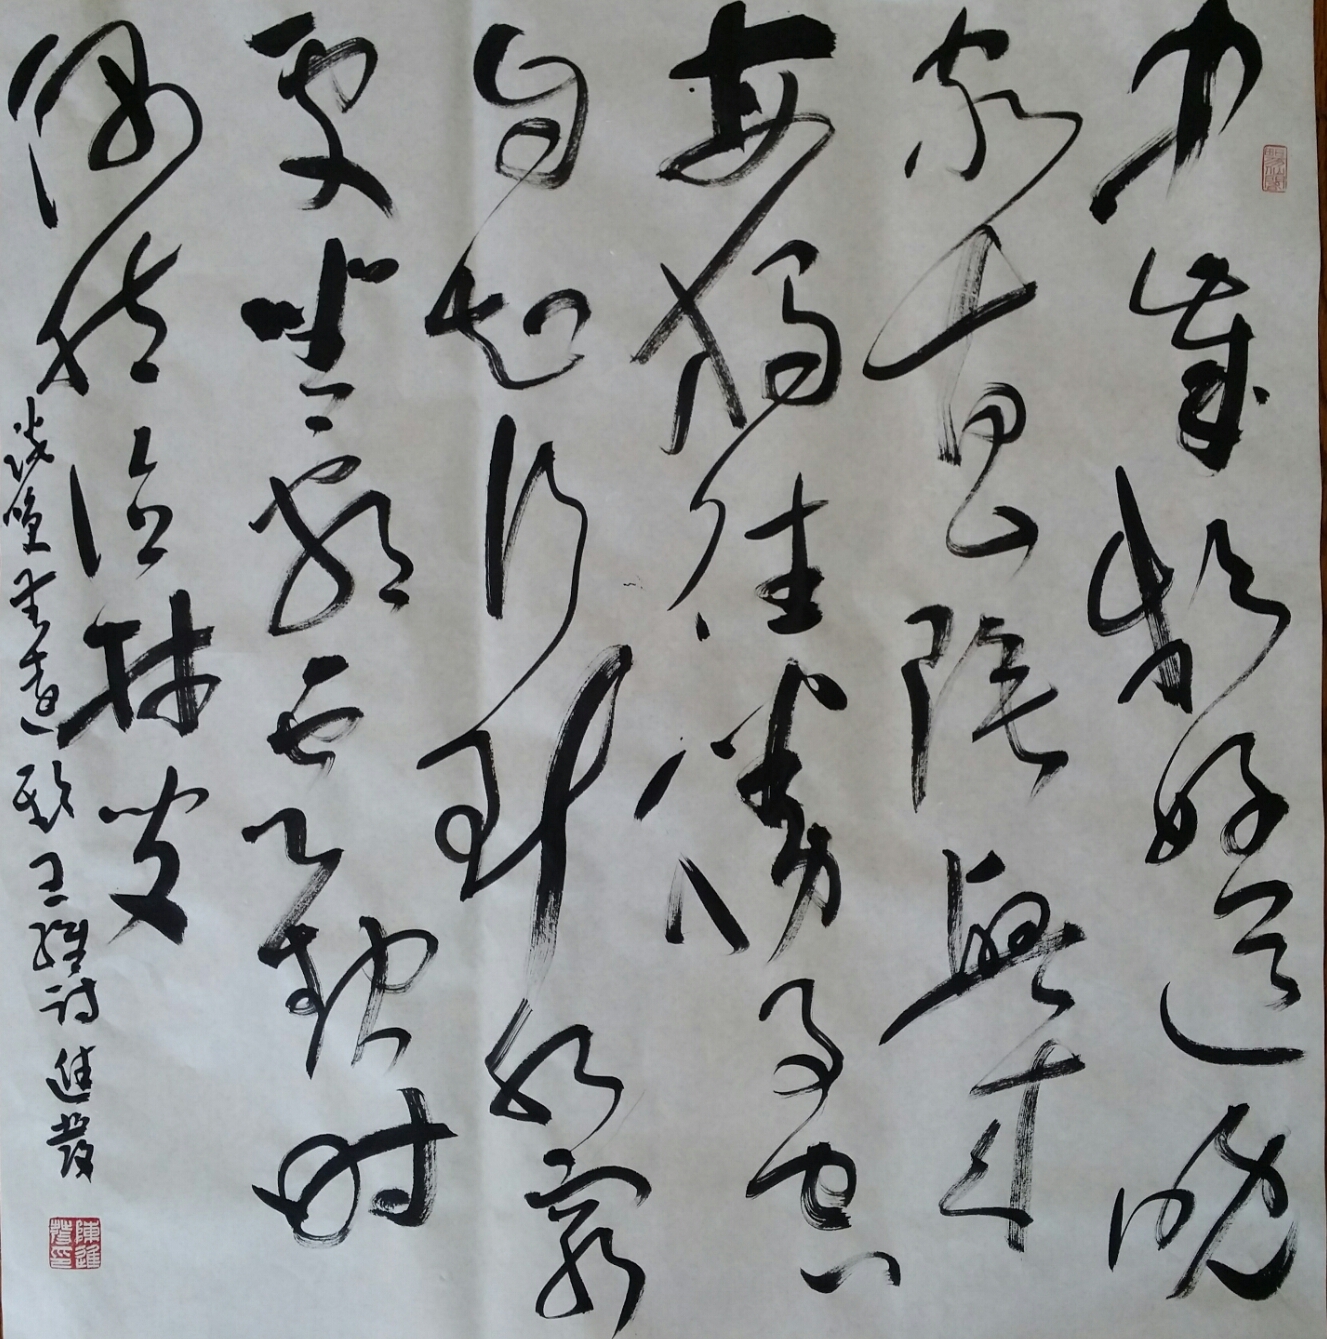 中歲頗好道晚
家南山陲興來
每獨往勝事空
自知行到水窮
處坐看雲起時
偶然值林叟
談笑無還期 王維詩 進發
陳進發印